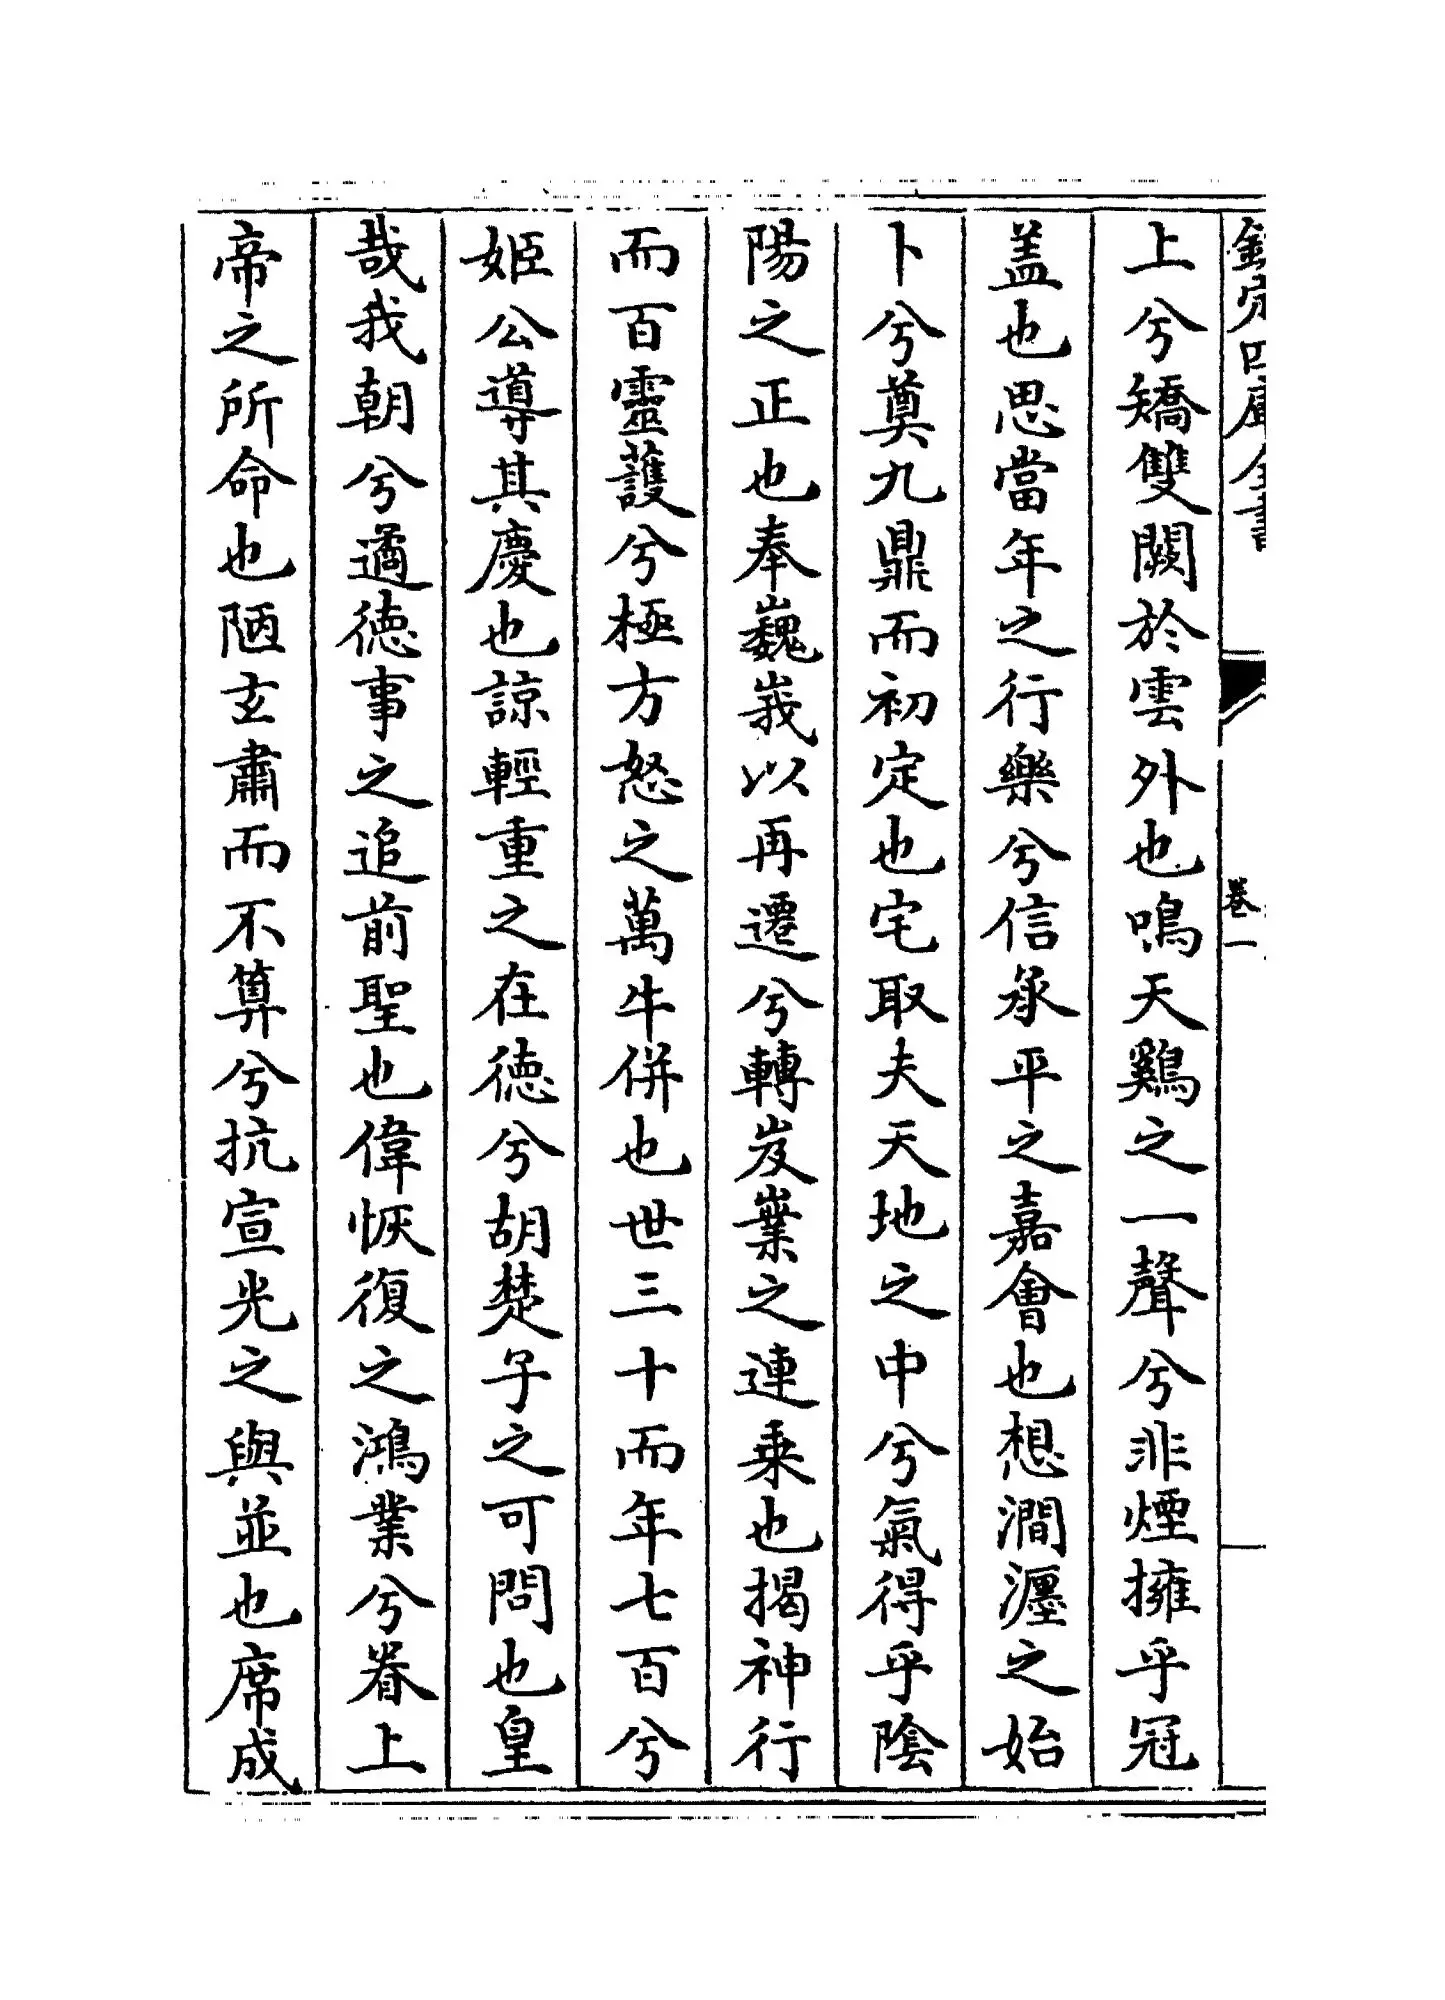 欽定四庫全書
卷一
上兮矯雙闕於雲外也鳴天鷄之一聲兮非煙擁乎冠
盖也思當年之行樂兮信承平之嘉會也想澗瀍之始
卜兮奠九鼎而初定也宅取夫天地之中兮氣得乎陰
陽之正也奉巍峩以再遷兮轉岌嶪之連乗也揭神行
而百靈護兮極方怒之萬牛併也世三十而年七百兮
姬公導其慶也諒輕重之在徳兮胡楚子之可問也皇
哉我朝兮遹徳事之追前聖也偉恢復之鴻業兮眷上
帝之所命也陋玄肅而不算兮抗宣光之與並也席成